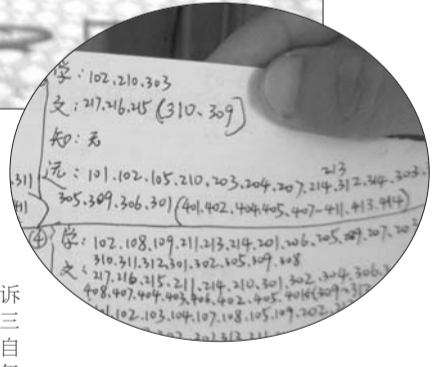 学：102.210.303
文：217.216.215(310、309)
知：无
213
元：101.102.105.210.203.204.207.214.312.314.303.
.311
305.309.306.301(401.402.404.405.407-411.413.414)
411
④ 学：102.108.109.211.213.214.201.206.205.209.207.202
310.311.312.301.302.305.309.308
文：217.216.215.211.214.210.301.302.304.306.3
408.407.404.403.406.402.405.401(309-312
.102.103.104.107.108.105.109.202.
诉
三
自